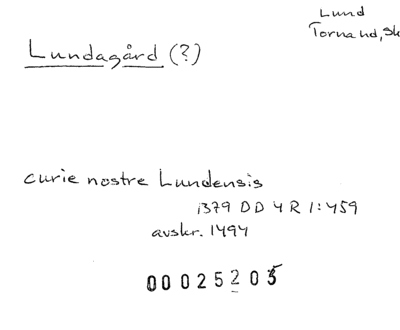 Lund
Torna hd, Sk
Lundagård (?)
curie nostre Lundensis
1379 DD 4 R 1:459
avskr. 1494
00025205